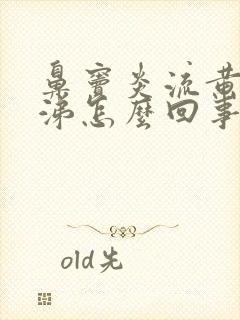 鼻窦炎流黄
涕怎麼回事
old先